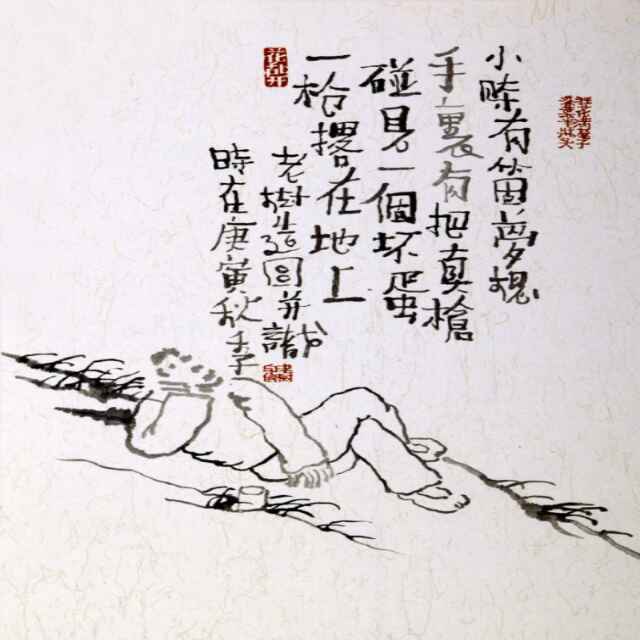 小時有箇夢想
手裏有把真槍
碰見一個坏蛋
一枪撂在地上
老樹造圖并識
時在庚寅秋季